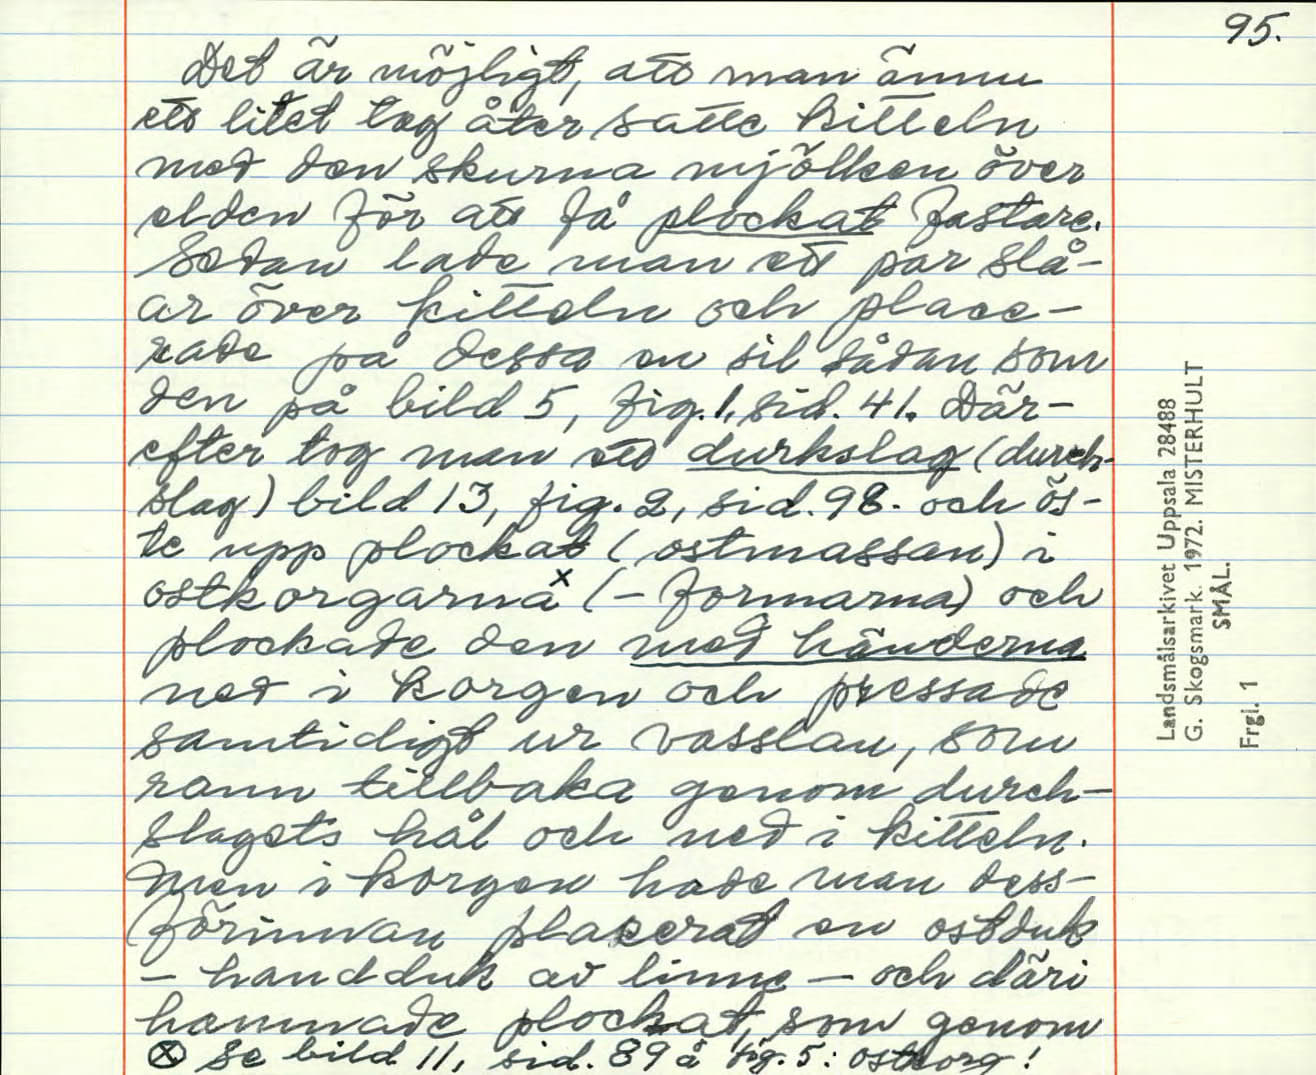 95.
Det är möjligt, att man ännu
ett litet tag åter satte kitteln
med den skurna mjölken över
elden för att få plockat fastare.
Sedan lade man ett par slå-
ar över kitteln och place-
rade på dessa en sil sådan som
den på bild 5, fig. 1, sid. 41. Där-
efter tog man ett durkslag (durch-
slag) bild 13, fig. 2, sid. 98. och ös-
te upp plockat (ostmassan) i
ostkorgarna x (- formarna) och
plockade den med händerna
ned i korgen och pressade
samtidigt ur vasslan, som
rann tillbaka genom durch-
slagets hål och ned i kitteln.
Men i korgen hade man dess-
förinnan placerat en ostduk
- handduk av linne - och däri
hamnade plockat, som genom
ⓧ Se bild 11, sid. 89 å fig. 5: ostkorg!
Landsmålsarkivet Uppsala 28488
G. Skogsmark. 1972. MISTERHULT
SMÅL.
Frgl. 1